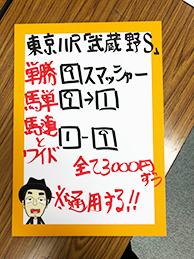 東京11R「武蔵野S」
単勝 9 スマッシャー
馬単 9→1
馬連とワイド 1-9
全て3000円ずつ
※通用する!!